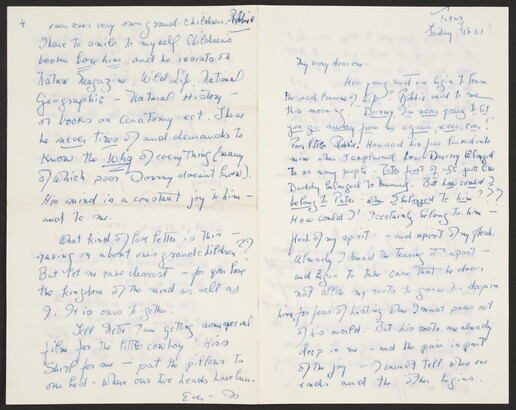 Friday, Feb 21
My very dear one -
How young must one begin to learn
the sad lessons of life? Robbie said to me
this morning - Danny I'm never going to let
you go away from us again ever, ever!
Poor little Robbie. How sad his face turned into
mine when I explained how Danny belonged
to so many people - to Tate first of all just like
Daddy belonged to Mummy. But how could I
belong to Tate - when I belonged to him???
How could I? I certainly belong to him -
flesh of my spirit - and spirit of my flesh.
Already I dread the tearing it apart -
and begin to take care that he does
not allow my roots to grow so deep in
him, for fear of hurting when I must pass out
of his world. But his roots are already
deep in me - and the pain is part
of the joy - I cannot tell where one
ends and the other begins.
4
even one's very own grand-children. Robbie
I have to smile to myself. Children's
books bore him, and he revels in
Nature Magazine, Wild Life, National
Geographic - Natural History -
or books on Anatomy ect. I hear
he never tires of and demands to
know the Why of everything (many
of which poor Danny doesn't know).
His mind is a constant joy to him -
and to me.
What kind of love letter is this -
raving on about one's grandchildren??
But let me rave dearest - for you love
the kingdom of the mind as well as
I. It is ours together.
Tell Mette I am getting some special
film for the little cowboy! Kiss
for me - pat the pillows to
our bed - where our two heads have lain.
Ever -